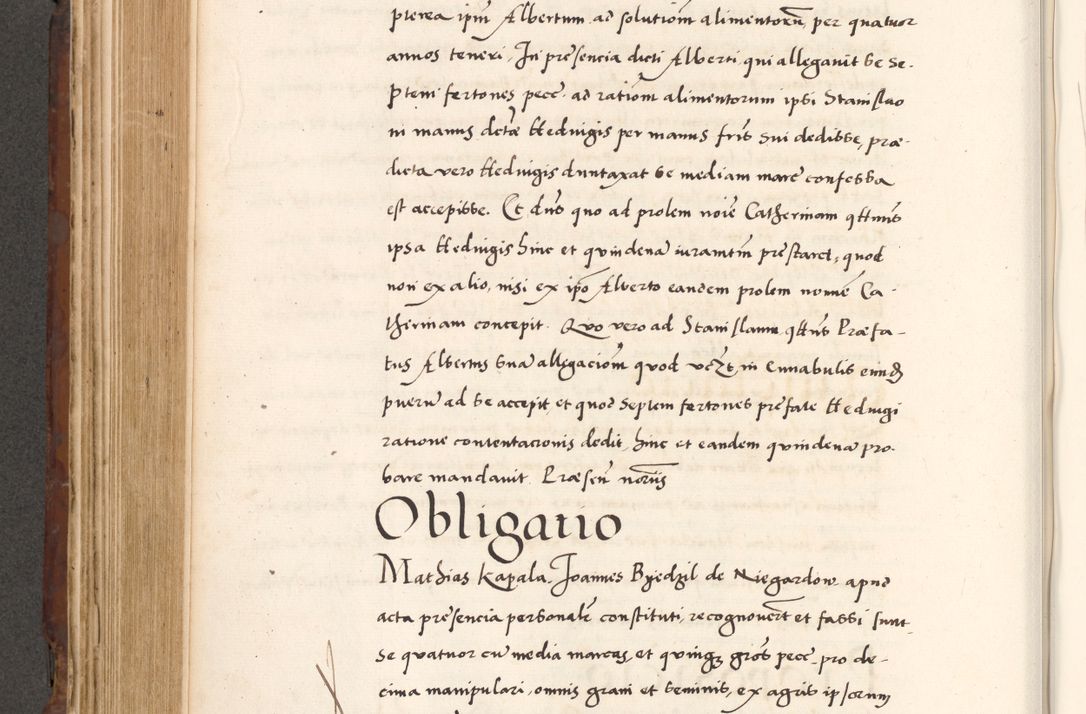 pterea ipm̃ Albertum ad solutiom̃ alimentorũ, per quatuor
annos teneri, In presencia dicti Alberti, qui allegavit se se-
ptem fertones pecc: ad rationẽ alimentorum ipsi Stanislao
in manus dctæ Hedvigis per manus fris̃ sui dedisse, præ-
dicta vero Hedvigis duntaxat se mediam marc̃ confessa
est accepisse. Et dñs quo ad prolem noiẽ Catherinam
ipsa Hedvigis hinc et quindenã iuramtm̃ prestaret, quod
non ex alio, nisi ex ipõ Alberto eandem prolem nomiẽ Ca-
therinam concepit. Quo vero ad Stanislaum, Præfa-
tus Alberus sua allegaciom̃ quod in Cunabulis
pueru ad se accepit, et quod septem fertones prefate Hedvigi
ratione contentacionis dedit, hinc et eandem quindena pro-
bare mandavit. Præsen̄ nor̃iis
Obligatio
Mathias Kapala, Joannes Byedzil de Niegardow apud
acta presencia personalr̃ constituti, recognover̃t et fassi sunt
se quatuor cũ media marcas, et quinqʒ gros̃ pecc. pro de-
cima manipulari, omnis grani et seminis, ex agris ipsorum